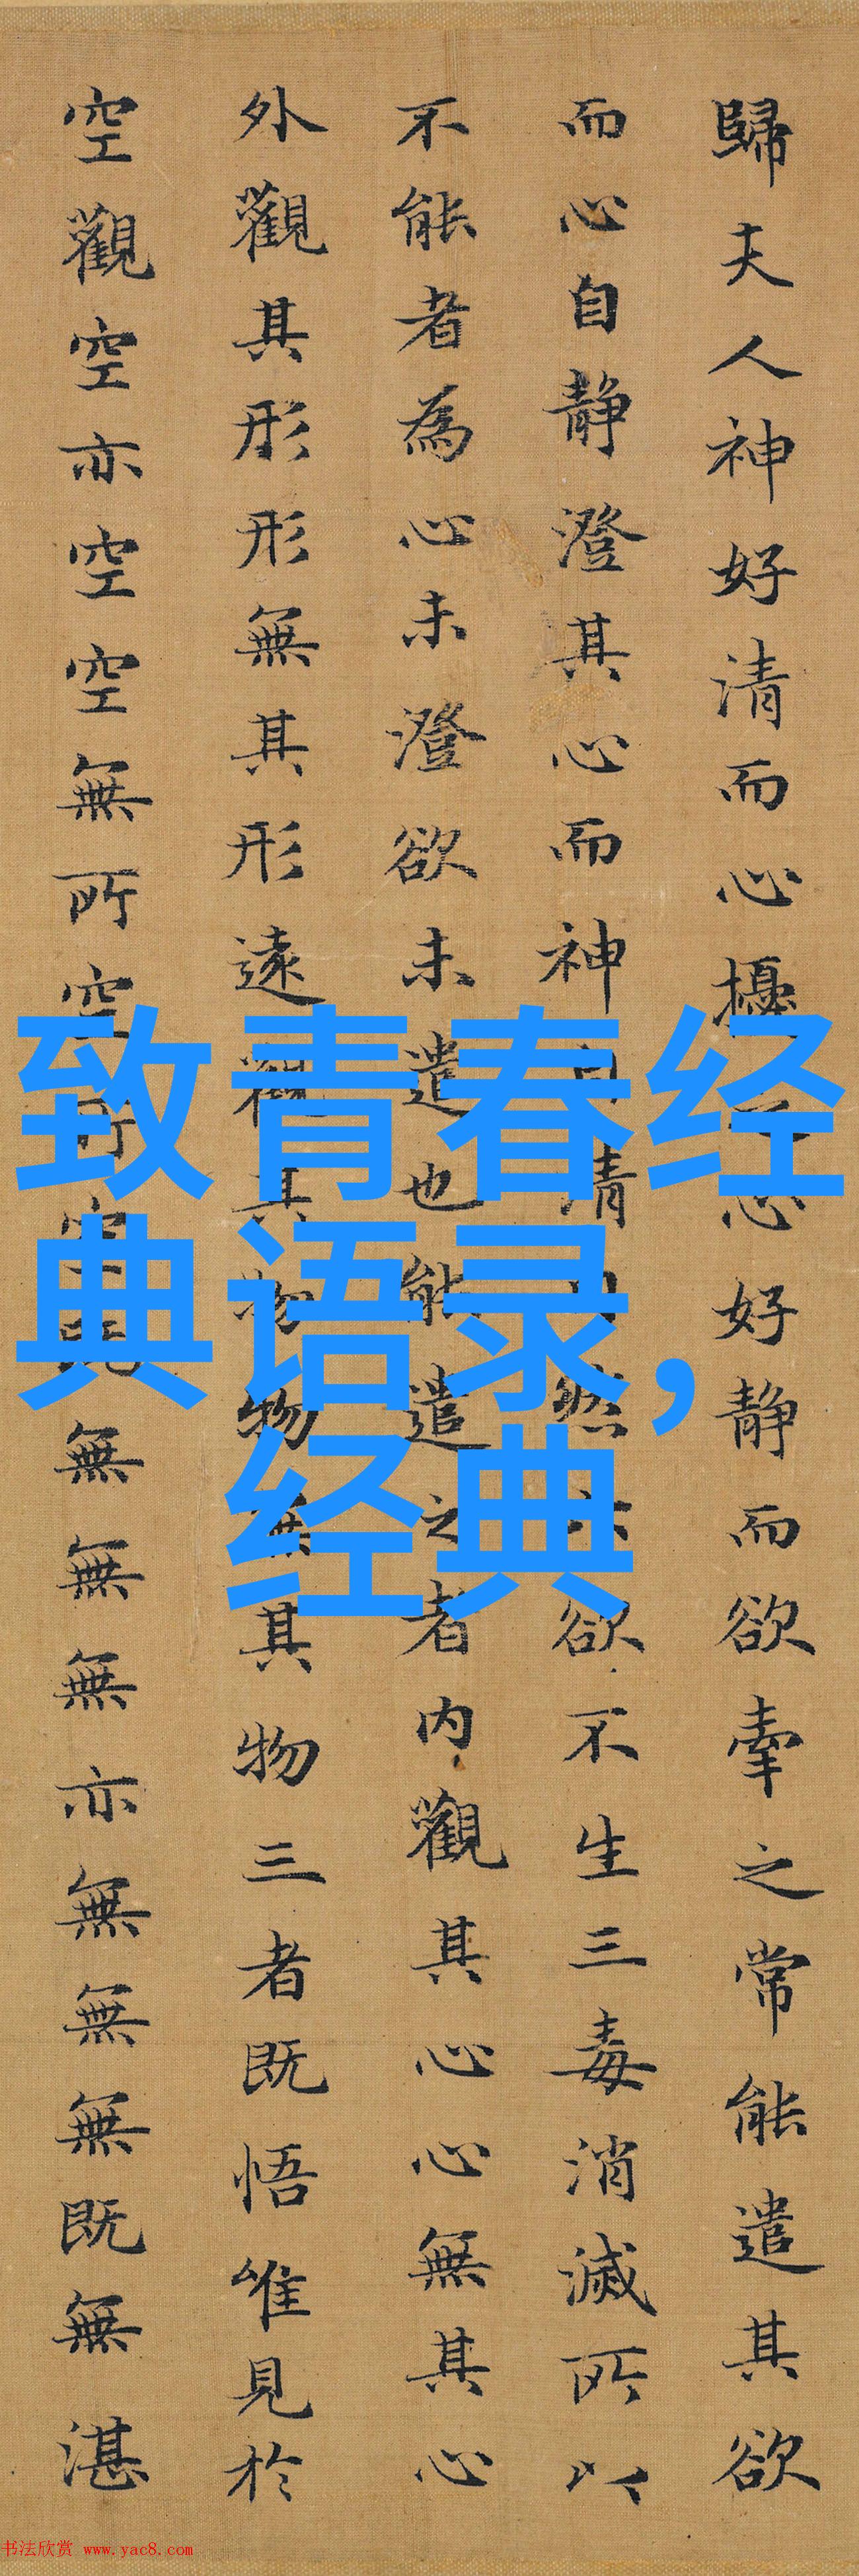 歸夫人神好清而心擾之心好静而欲牽之常能遣其欲
而心自静澄其心而神自清自然六欲不生三毒消滅所以
不能者為心未澄欲未遣也能遣之者内觀其心心無其心
外觀其形形無其形遠觀其物物無其物三者既悟唯見於
空觀空亦空空無所空所空既無無無亦無無無既無湛
致青春经
典语录，
经典
书法欣赏 www.yac8.com